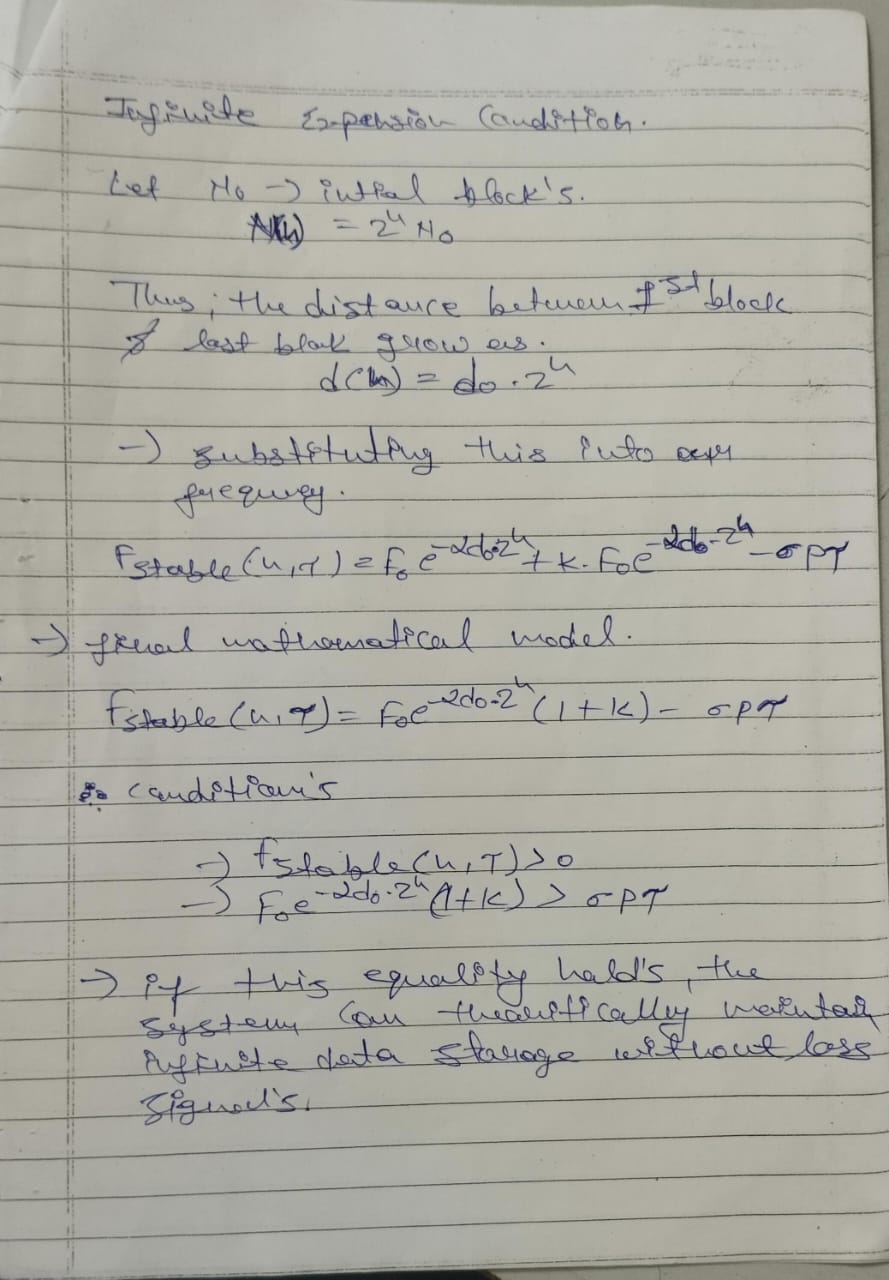 Infinite Expension Candition.
Let N₀ -> intial block's.
N(n) = 2ⁿ N₀
Thus, the distance between 1st block
& last blok grow as.
d(n) = d₀ . 2ⁿ
-> substituting this into our
frequency.
fstable (n,T) = F₀ e^-αd₀·2ⁿ + k. F₀e^-αd₀·2ⁿ - σρT
-> final mathamatical model.
fstable (n,T) = F₀e^-αd₀·2ⁿ (1+k) - σρT
Candition's
-> fstable (n,T) > 0
-> F₀e^-αd₀·2ⁿ (1+k) > σρT
-> if this equality hald's, the
system can maintain
infinite data starage without loss
signal's.